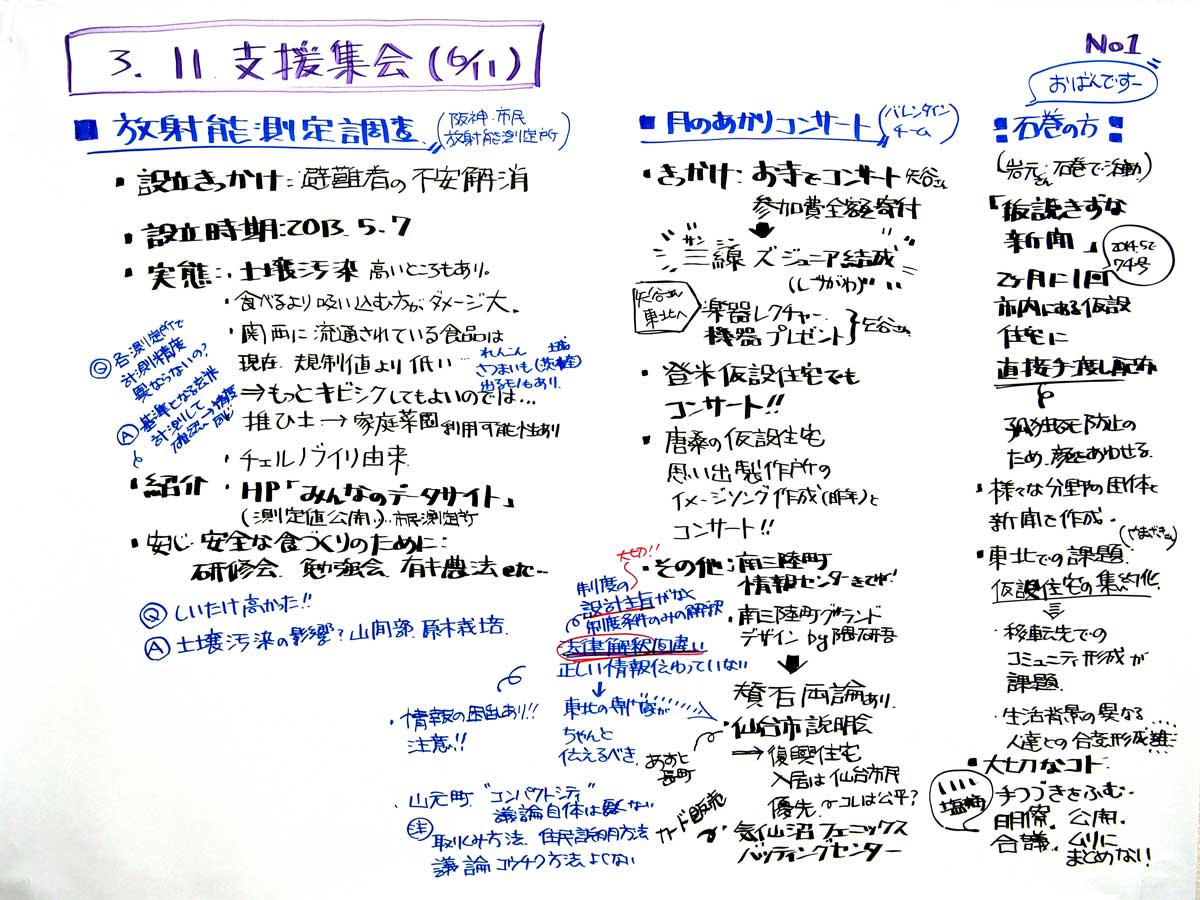 3.11 支援集会(6/11)
No1
おばんですー
■ 放射能測定調査
(阪神・市民
放射能測定所)
・設立きっかけ:避難者の不安解消
・設立時期:2013.5.7
・実態:土壌汚染 高いところもあり。
・食べるより吸い込む方がダメージ大。
・関西に流通されている食品は
現在 規制値より低い…
れんこん
さつまいも(茨城産)
出るモノもあり
⇒もっとキビシクしてもよいのでは…
堆ひ土→家庭菜園利用可能性あり
・チェルノブイリ由来
Q 各測定所で
計測精度
異ならないの?
A 基準となる玄米
計測して
確認→精度
同じ
・紹介・HP「みんなのデータサイト」
(測定値公開)…市民測定所
・安心 安全な食づくりのために:
研修会、勉強会、有機農法etc…
Q しいたけ高かった!!
A 土壌汚染の影響?山間部 原木栽培
■月のあかりコンサート
(バレンタイン
チーム)
・きっかけ:お寺でコンサート 矢谷さん
参加費全額寄付
サンシン
三線ズジュニア結成
(しづがわ)
矢谷さん
東北へ
楽器レクチャー
機器プレゼント
}矢谷さん
・登米仮設住宅でも
コンサート!!
・唐桑の仮設住宅
思い出製作所の
イメージソング作成(昨年)と
コンサート!!
・その他:南三陸町
情報センターきてね!
・南三陸町グランド
デザイン by 隈研吾
賛否両論あり
・仙台市説明会
あすと
長町
→復興住宅
入居は仙台市民
優先 コレは公平?
カード販売
・気仙沼フェニックス
バッティングセンター
大切!!
制度の
設計主旨がなく
制度条件のみの解釈
法律解釈間違い
正しい情報伝わっていない
↓
東北の専門家が
ちゃんと
伝えるべき
・情報の困乱あり!!
注意!!
・山元町 “コンパクトシティ”
議論自体は悪くない
注 取りくみ方法、住民説明方法
議論コウチク方法よくない
■石巻の方■
(岩元さん 石巻で活動)
「仮設きずな
新聞」
2014.5で
74号
2ヶ月に1回
市内にある仮設
住宅に
直接手渡し配布
孤独死防止の
ため、顔をあわせる
・様々な分野の団体と
新聞を作成。
(やまざきさん)
・東北での課題
仮設住宅の集約化
・移転先での
コミュニティ形成が
課題
・生活背景の異なる
人達との合意形成難
・大切なコト
手つづきをふむ
明僚、公開
合議、ムリに
まとめない!